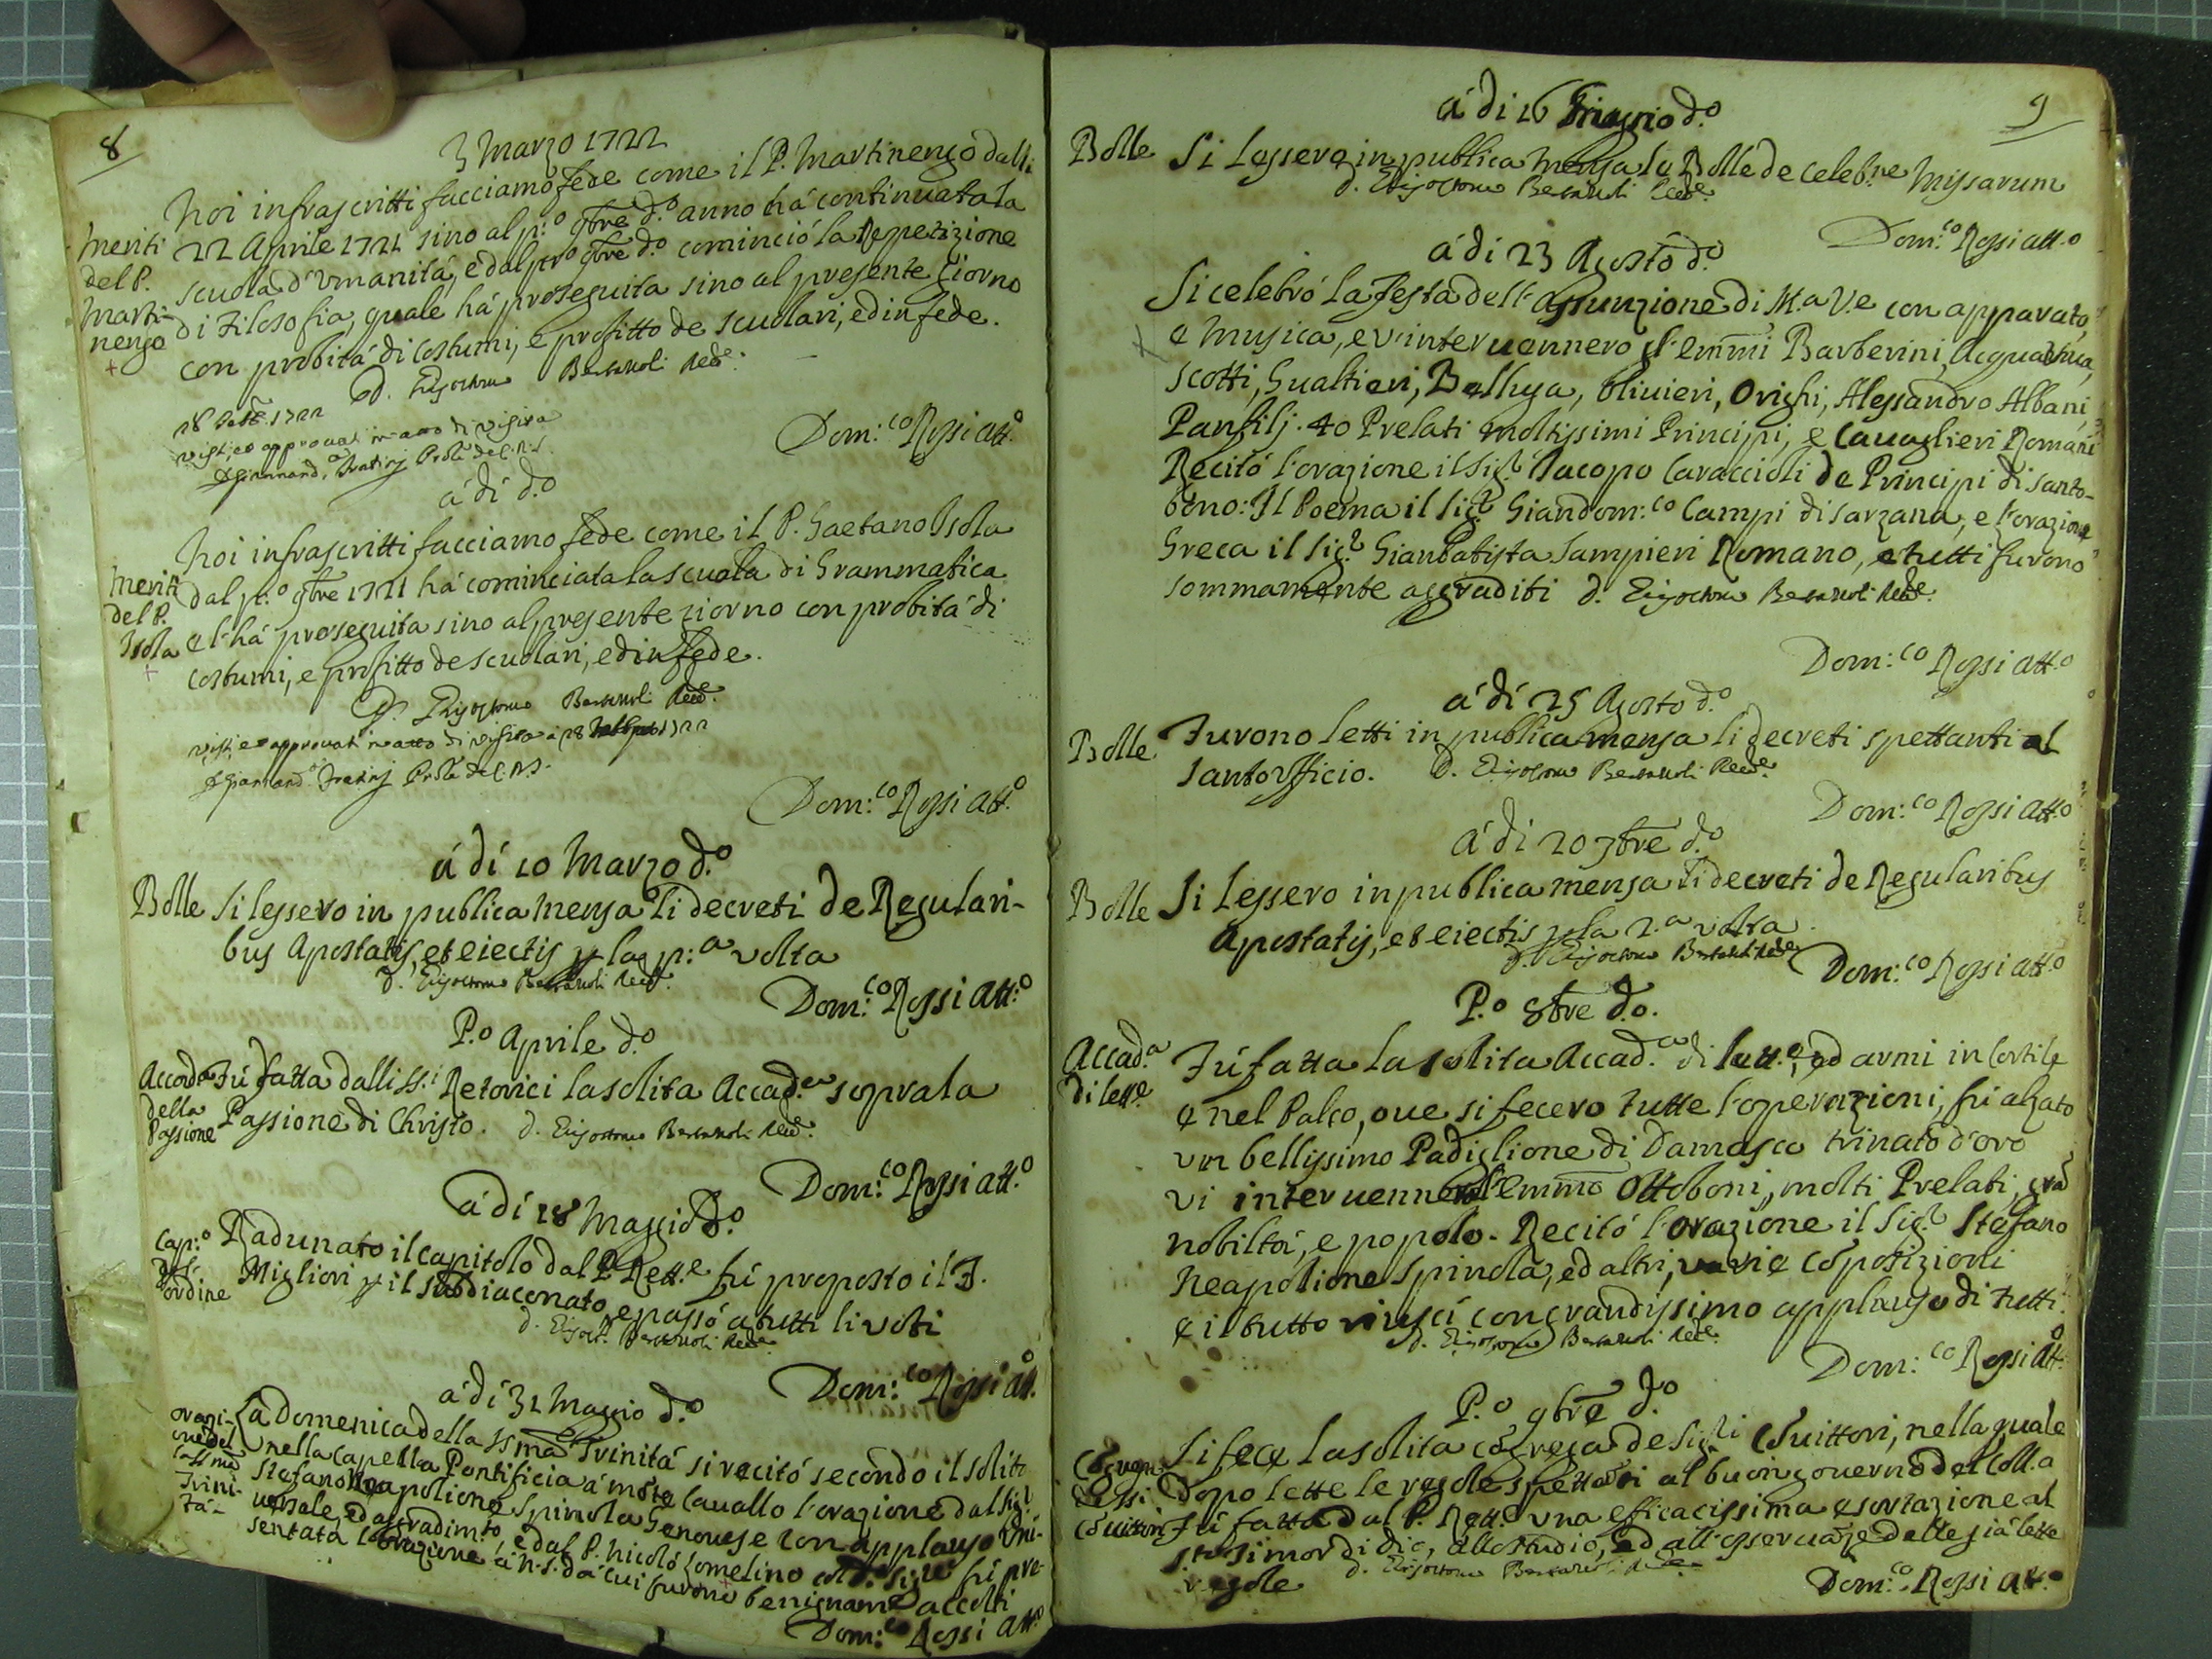 8
3 Marzo 1722
Noi infrascritti facciamo fede come il P. Martinengo dalli
Meriti
del P.
Marti-
nengo
22 Aprile 1721 sino al p:o 9bre d.o anno há continuata la
scuola d'umanitá, e dal pro 9bre d.o cominció la Repetizione
di Filosofia, quale há proseguita sino al presente Giorno
con probitá di costumi, e profitto de scuolari, ed in fede.
1722
visti, et approvati in atto di visita
Dom:co Rossi att.o
á dí d.o
Noi infrascritti facciamo fede come il P. Gaetano Isola
Meriti
del P.
Isola
dal p:o 9bre 1721 há cominciata la scuola di Grammatica
e l'há proseguita sino al presente giorno con probitá di
costumi, e profitto de scuolari, ed in fede.
visti, et approvati in atto di visita a 28 1722
Dom:co Rossi att.o
á dí 10 Marzo d.o
Bolle Si lessero in publica mensa li decreti de Regulari-
bus Apostatis, et eiectis p la p:a volta
Dom:co Rossi att:o
P.o Aprile d.o
Accad.a
della
Passione
Fú fatta dalli SS.i Retorici la solita Accad.a sopra la
Passione di Christo.
Dom:co Rossi att.o
á dí 28 Maggio d.o
Cap:o
del
ordine
Radunato il capitolo dal P. Rett.e fú proposto il F.
Migliori p il subdiaconato, e passó a tutti li voti
Dom:co Rossi att.o
á dí 31 Maggio d.o
orazi-
one del
la SS.ma
Trini-
tá-
La Domenica della SSma Trinitá si recitó secondo il solito
nella Capella Pontificia á mõte Cavallo l'orazione dal Sig.r
Stefano Neapolione Spinola Genovese con applauso Uni-
versale, ed aggradim.to e dal P. Nicoló Lomelino col d.o Sig.re fú pre-
sentata l'orazione á N.S. da cui furono benignam.e accolti
Dom:co Rossi att.o
9
á di 16 Giugnio d.o
Bolle Si lessero in publica mensa le Bolle de celeb.ne Missarum
Dom:co Rossi att.o
á di 23 Agosto d.o
Si celebró la festa dell'Assunzione di M.a V.e con apparato,
e musica, e v'intervennero gl'emm̃i Barberini, Acquaviva,
Scotti, Gualtieri, Belluga, Olivieri, Orighi, Alessandro Albani,
Panfilj. 40 Prelati moltissimi Principi, e Cavaglieri Romani
Recitó l'orazione il Sig.r Iacopo Caraccioli de Principi di Santo-
bono: Il Poema il Sig.r Giandom:co Campi di Sarzana, e l'orazione
Greca il Sig.r Gianbatista Sampieri Romano, e tutti furono
sommamente aggraditi
Dom:co Rossi att.o
á dí 25 Agosto d.o
Bolle Furono letti in publica mensa li decreti spettanti al
Santo Ufficio.
Dom:co Rossi att.o
á di 20 7bre d.o
Bolle Si lessero in publica mensa li decreti de Regularibus
apostatis, et eiectis p la 2.a volta
Dom:co Rossi att.o
P.o 8bre d.o.
Accad.a
di lett.e
Fú fatta la solita Accad.a di lett.e, ed armi in Cortile
e nel Palco, ove si fecero tutte l'operazioni, fú alzato
un bellissimo Padiglione di Damasco trinato d'oro
vi intervenne l'emm̃o Ottoboni, molti Prelati, grã
nobiltá, e popolo. Recitó l'orazione il Sig.r Stefano
Neapolione Spinola, ed altri, varie cõposizioni
e il tutto riuscí con grandissimo applauso di tutti.
Dom:co Rossi att.o
P.o 9bre d.o
Cõgreg.e
de SSi
Cõvittori
Si fece la solita cõgrega de Sig.ri Cõvittori, nella quale
dopo lette le regole spettãti al buon governo del Coll.o
fú fatta dal P. Rett.e una efficacissima esortazione al
S.to Timor di Dio, allo studio, ed all'osservãza delle giá lette
regole
Dom:co Rossi att.o